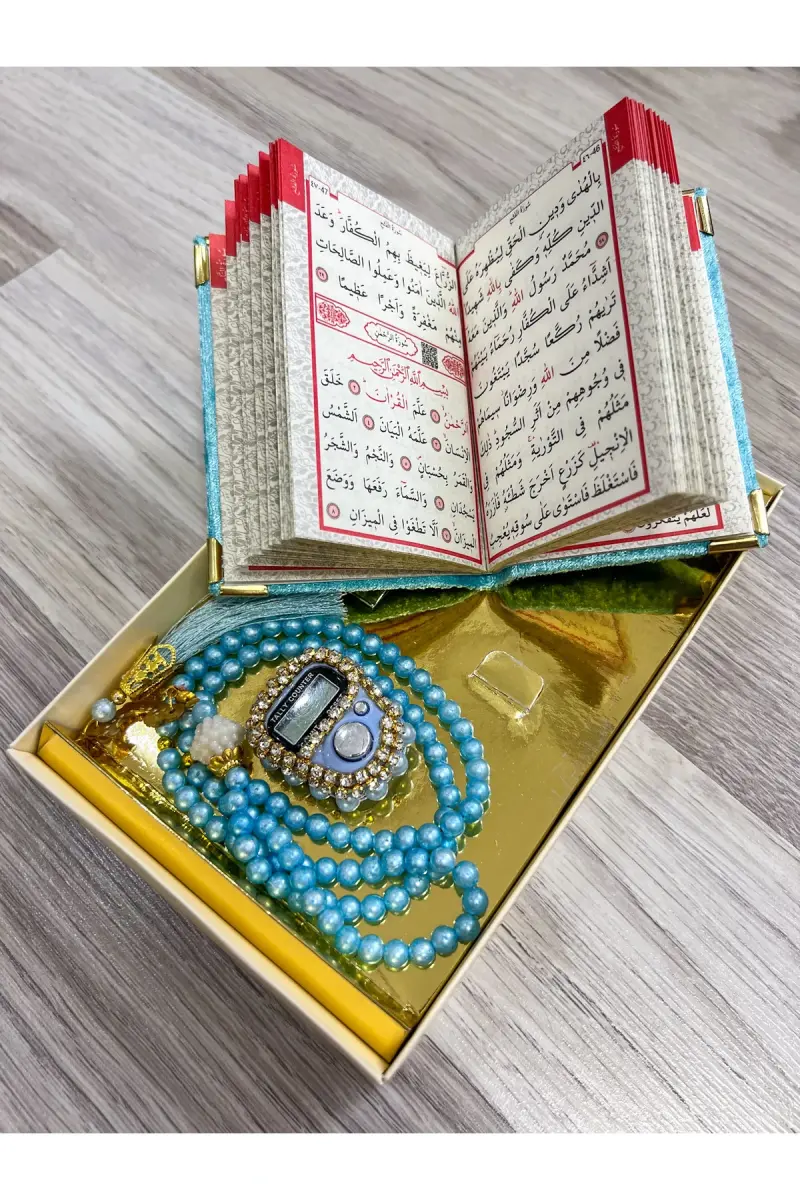 سورة الفتح
٤٦-46
بِالْهُدٰى وَد۪ينِ الْحَقِّ لِيُظْهِرَهُ عَلَى
الدّ۪ينِ كُلِّه۪ وَكَفٰى بِاللّٰهِ شَه۪يدًا
٢٨ مُحَمَّدٌ رَسُولُ اللّٰهِ وَالَّذ۪ينَ مَعَهُ
اَشِدَّٓاءُ عَلَى الْكُفَّارِ رُحَمَٓاءُ بَيْنَهُمْ
تَرٰيهُمْ رُكَّعًا سُجَّدًا يَبْتَغُونَ
فَضْلًا مِنَ اللّٰهِ وَرِضْوَانًا س۪يمَاهُمْ
ف۪ي وُجُوهِهِمْ مِنْ اَثَرِ السُّجُودِ ذٰلِكَ
مَثَلُهُمْ فِي التَّوْرٰيةِ وَمَثَلُهُمْ فِي
الْاِنْج۪يلِ كَزَرْعٍ اَخْرَجَ شَطْـَٔهُ فَاٰزَرَهُ
فَاسْتَغْلَظَ فَاسْتَوٰى عَلٰى سُوقِه۪ يُعْجِبُ
٤٧-47
سورة الفتح
الزُّرَّاعَ لِيَغ۪يظَ بِهِمُ الْكُفَّارَ وَعَدَ
اللّٰهُ الَّذ۪ينَ اٰمَنُوا وَعَمِلُوا الصَّالِحَاتِ
مِنْهُمْ مَغْفِرَةً وَاَجْرًا عَظ۪يمًا ٢٩
سورة الرحمن
بِسْمِ اللّٰهِ الرَّحْمٰنِ الرَّح۪يمِ
اَلرَّحْمٰنُ ١ عَلَّمَ الْقُرْاٰنَ ٢ خَلَقَ
الْاِنْسَانَ ٣ عَلَّمَهُ الْبَيَانَ ٤ اَلشَّمْسُ
وَالْقَمَرُ بِحُسْبَانٍ ٥ وَالنَّجْمُ وَالشَّجَرُ
يَسْجُدَانِ ٦ وَالسَّمَٓاءَ رَفَعَهَا وَوَضَعَ
الْم۪يزَانَ ٧ اَلَّا تَطْغَوْا فِي الْم۪يزَانِ ٨
لَعَلَّهُمْ يَتَفَكَّرُونَ
TALLY COUNTER